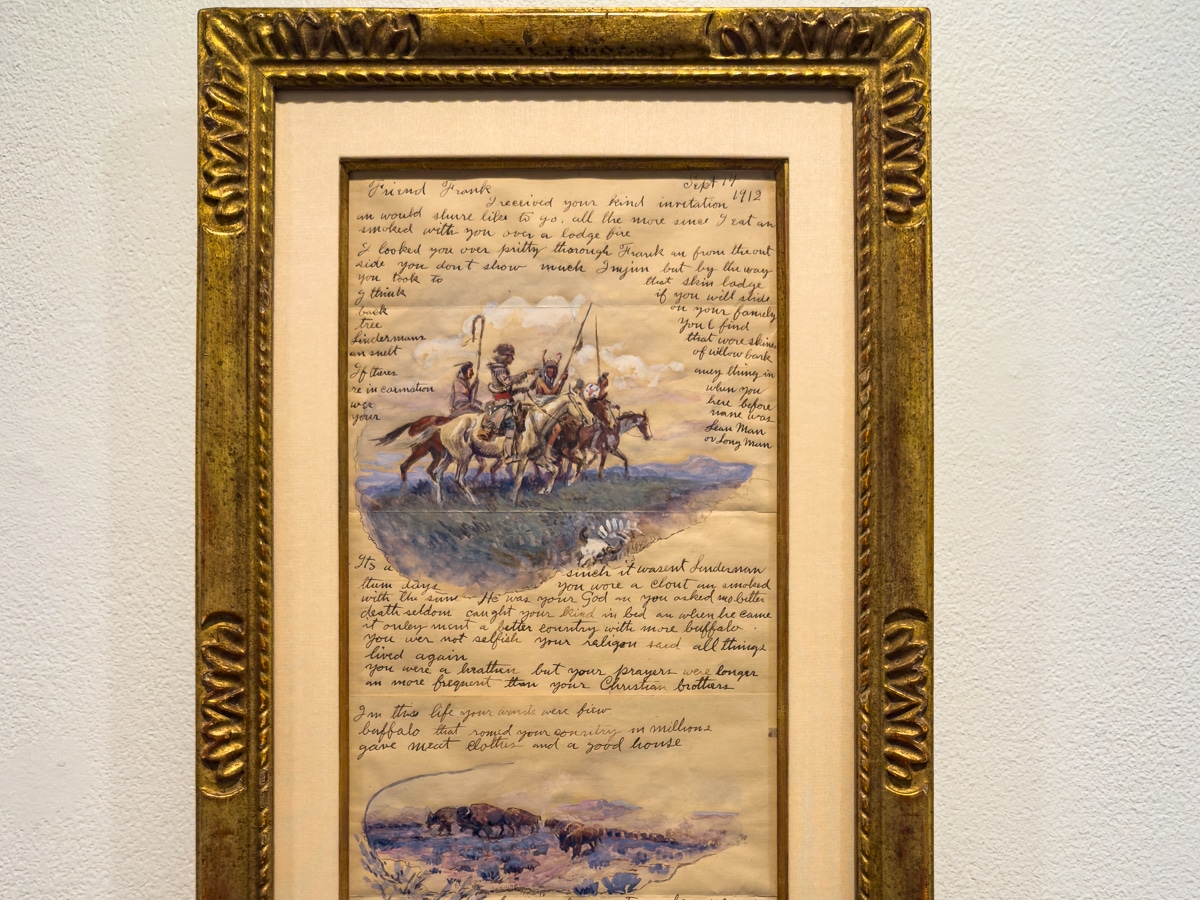 Friend Frank
Sept 14
1912
I received your kind invitation
an would shure like to go. all the more since I eat an
smoked with you over a lodge fire
I looked you over pritty thorough Frank an from the out
side you don't show much Injun but by the way
you took to that skin lodge
I think if you will slide
back on your family
tree You l find
Lindermans that wore skins
an smelt of willow bark
If theres aney thing in
re in carnation when you
wer here before
your name was
Lean Man
or Long Man
Its a sinch it wasent Linderman
them days you wore a clout an smoked
with the sun He was your God an you asked no better
death seldom caught your kind in bed an when he came
it onley ment a better country with more buffalo
you wer not selfish your raligon said all things
lived again
you were a heathen but your prayers were longer
an more frequent than your Christian brothers
In this life your wants were fiew
buffalo that romed your country in millions
gave meat clothes and a good house